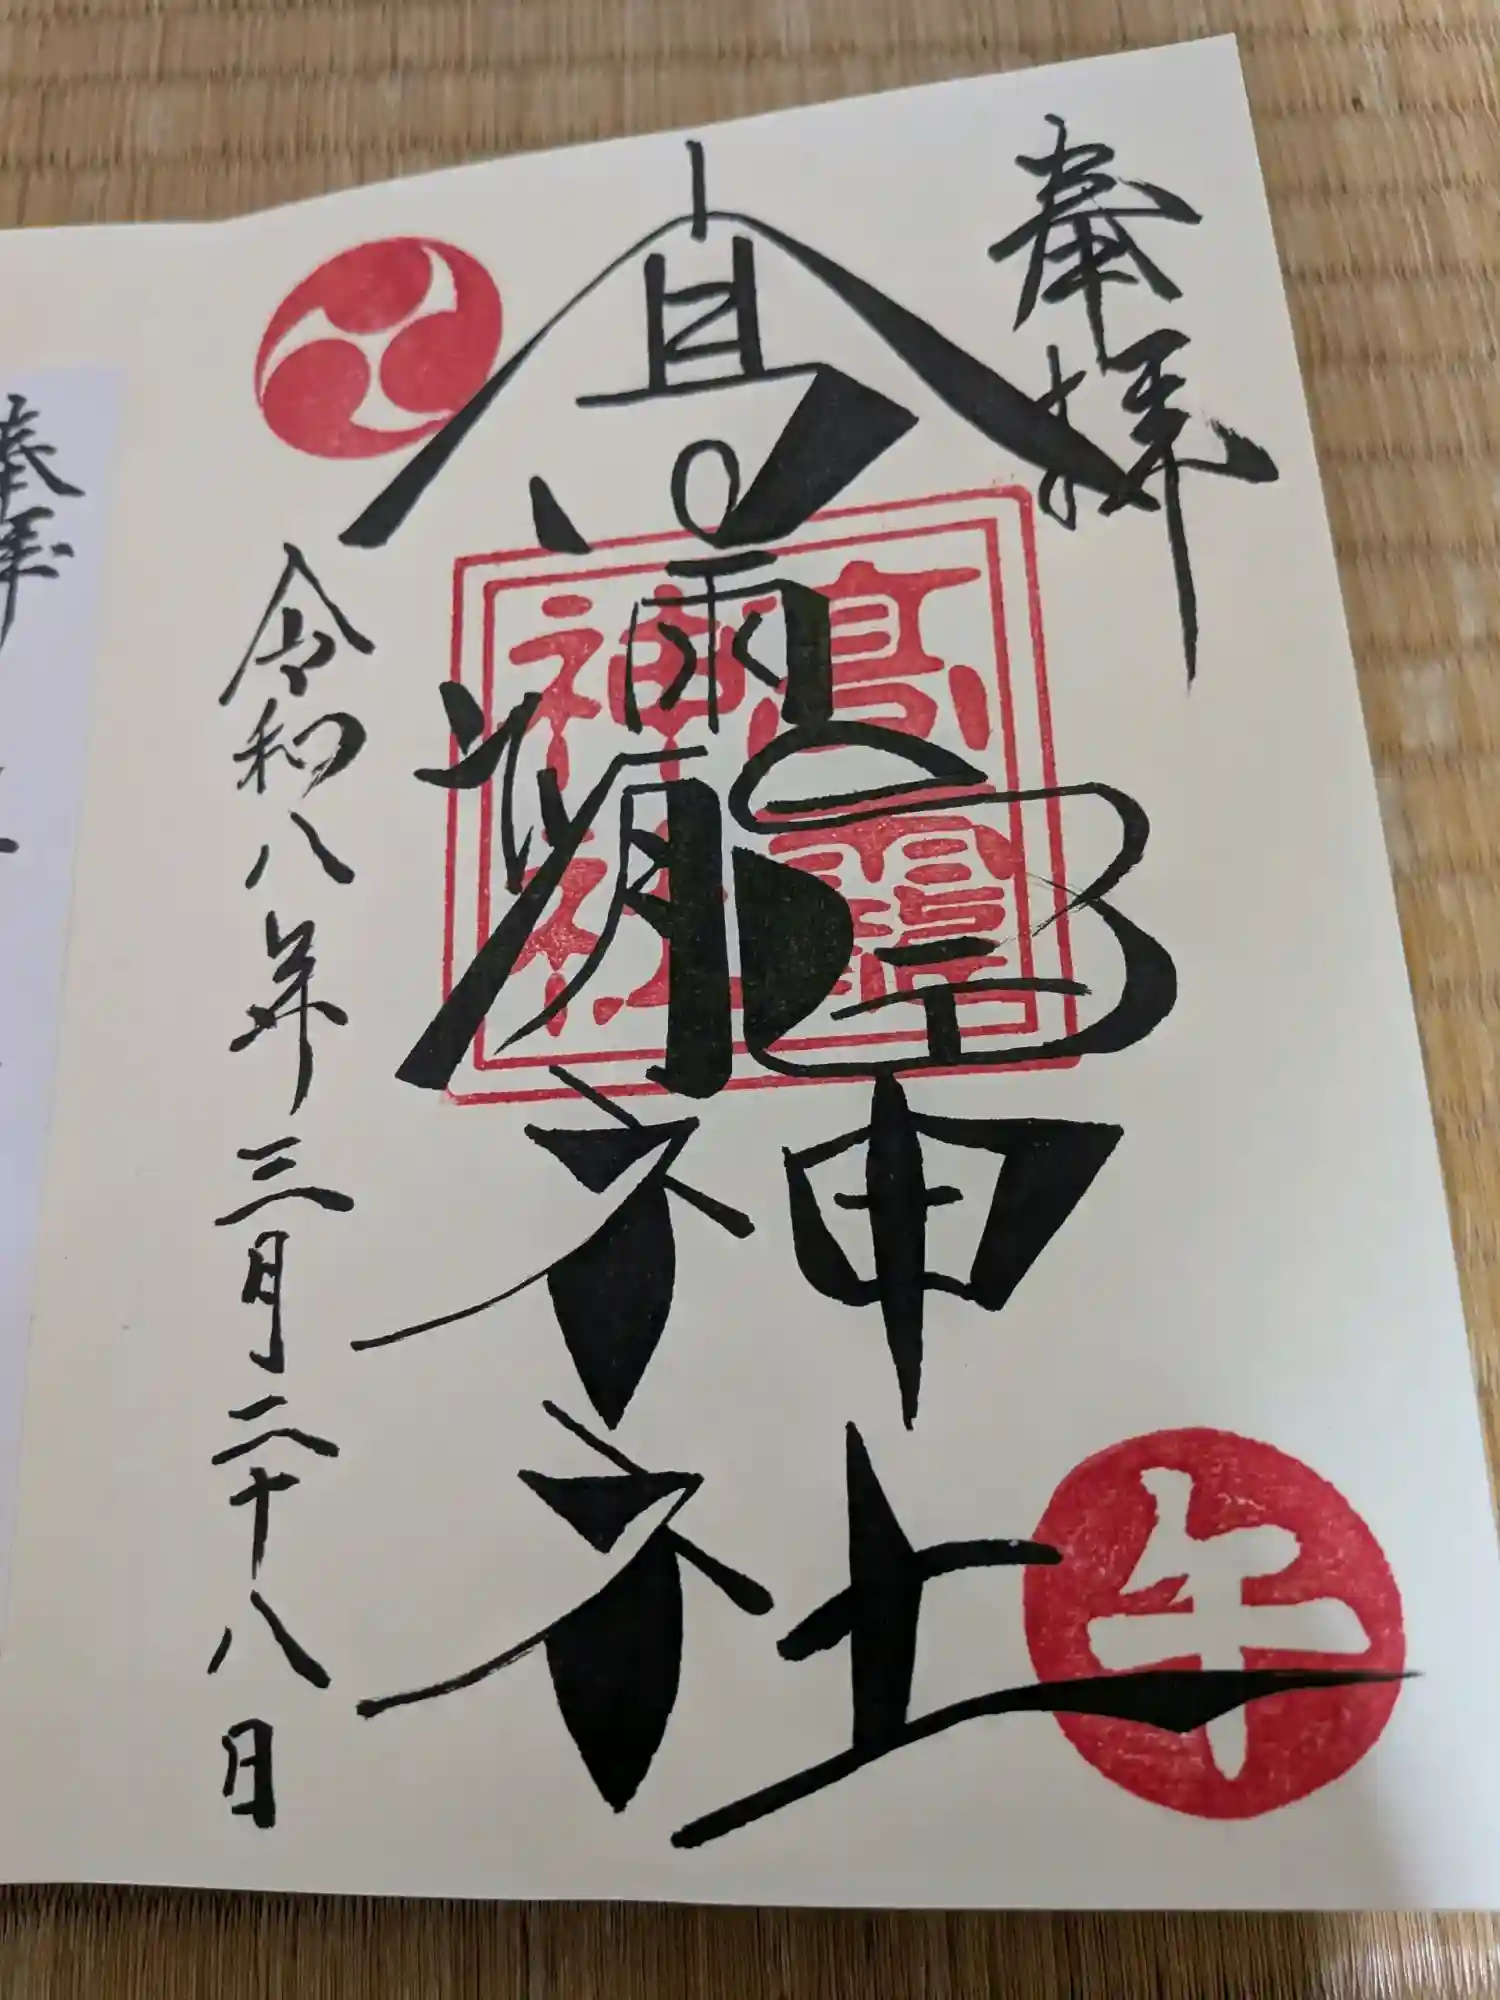 奉拝
高龗神社
高龗
神社
午
令和八年三月二十八日
奉拝